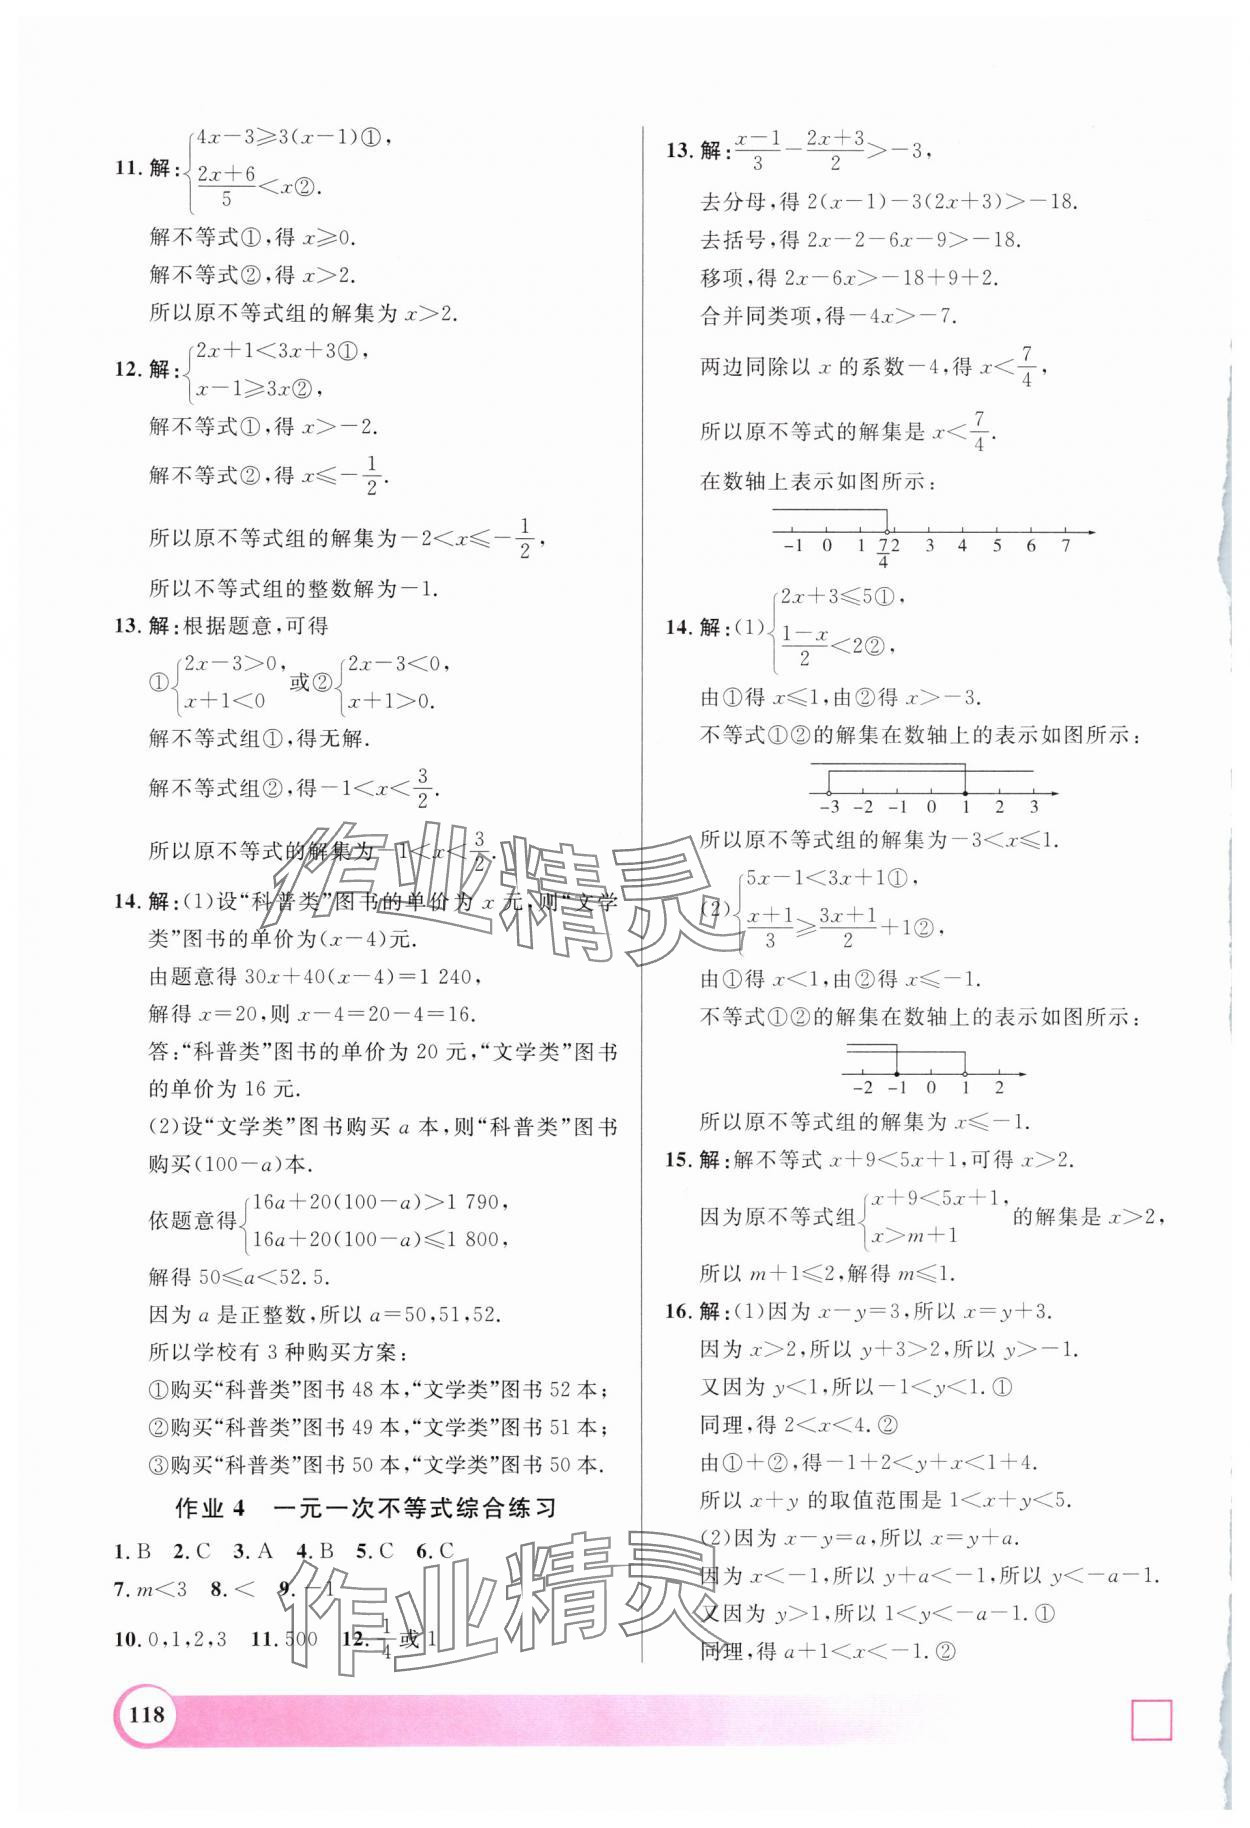 11. 解:{4x-3≥3(x-1)①,
2x+6/5<x②.
解不等式①,得 x≥0.
解不等式②,得 x>2.
所以原不等式组的解集为 x>2.
12. 解:{2x+1<3x+3①,
x-1≥3x②,
解不等式①,得 x>-2.
解不等式②,得 x≤-1/2.
所以原不等式组的解集为-2<x≤-1/2,
所以不等式组的整数解为-1.
13. 解:根据题意,可得
①{2x-3>0, x+1<0 或②{2x-3<0, x+1>0.
解不等式组①,得无解.
解不等式组②,得-1<x<3/2.
所以原不等式的解集为-1<x<3/2.
14. 解:(1)设“科普类”图书的单价为 x 元,则“文学
类”图书的单价为(x-4)元.
由题意得 30x+40(x-4)=1 240,
解得 x=20,则 x-4=20-4=16.
答:“科普类”图书的单价为 20 元,“文学类”图书
的单价为 16 元.
(2)设“文学类”图书购买 a 本,则“科普类”图书
购买(100-a)本.
依题意得{16a+20(100-a)>1 790,
16a+20(100-a)≤1 800,
解得 50≤a<52.5.
因为 a 是正整数,所以 a=50,51,52.
所以学校有 3 种购买方案:
①购买“科普类”图书 48 本,“文学类”图书 52 本;
②购买“科普类”图书 49 本,“文学类”图书 51 本;
③购买“科普类”图书 50 本,“文学类”图书 50 本.
作业 4 一元一次不等式综合练习
1. B 2. C 3. A 4. B 5. C 6. C
7. m<3 8. < 9. -1
10. 0,1,2,3 11. 500 12. 1/4或 1
13. 解:x-1/3-2x+3/2>-3,
去分母,得 2(x-1)-3(2x+3)>-18.
去括号,得 2x-2-6x-9>-18.
移项,得 2x-6x>-18+9+2.
合并同类项,得-4x>-7.
两边同除以 x 的系数-4,得 x<7/4,
所以原不等式的解集是 x<7/4.
在数轴上表示如图所示:
-1 0 1 7/4 2 3 4 5 6 7
14. 解:(1){2x+3≤5①,
1-x/2<2②,
由①得 x≤1,由②得 x>-3.
不等式①②的解集在数轴上的表示如图所示:
-3 -2 -1 0 1 2 3
所以原不等式组的解集为-3<x≤1.
(2){5x-1<3x+1①,
x+1/3≥3x+1/2+1②,
由①得 x<1,由②得 x≤-1.
不等式①②的解集在数轴上的表示如图所示:
-2 -1 0 1 2
所以原不等式组的解集为 x≤-1.
15. 解:解不等式 x+9<5x+1,可得 x>2.
因为原不等式组{x+9<5x+1, x>m+1 的解集是 x>2,
所以 m+1≤2,解得 m≤1.
16. 解:(1)因为 x-y=3,所以 x=y+3.
因为 x>2,所以 y+3>2,所以 y>-1.
又因为 y<1,所以-1<y<1.①
同理,得 2<x<4.②
由①+②,得-1+2<y+x<1+4.
所以 x+y 的取值范围是 1<x+y<5.
(2)因为 x-y=a,所以 x=y+a.
因为 x<-1,所以 y+a<-1,所以 y<-a-1.
又因为 y>1,所以 1<y<-a-1.①
同理,得 a+1<x<-1.②
118
作业精灵
作业精灵